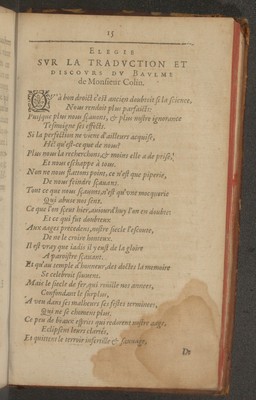 15
ELEGIE
SVR LA TRADVCTION ET
DISCOVRS DV BAVLME
de Monsieur Colin.
QV'à bon droict c'est ancien doubtoit si la science,
Nous rendoit plus parfaicts:
Puisque plus nous sçauons, & plus nostre ignorance
Tesmoigne ses effects.
Si la perfection ne vient d'ailleurs acquise,
Hé! qu'est-ce que de nous?
Plus nous la recherchons, & moins elle a de prise,
Et nous eschappe à tous.
Nan ne nous flattons point, ce n'est que piperie,
De nous feindre sçauans.
Tout ce que nous sçauons, n'est qu'vne mocquerie
Qui abuse nos sens.
Ce que l'on sçeut hier, auiourd'huy l'on en doubte:
Et ce qui fut doubteux
Aux aages precedens, nostre siecle l'escoute,
De ne le croire honteux.
Il est vray que iadis il y eust de la gloire
A paroistre sçauans.
Et qu'au temple d'honneur, des doctes la memoire
Se celebroit
Mais le siecle de fer, qui rouille nos annees,
Confondant le surplus,
A veu dans ses malheurs ses festes terminees,
Qui ne se chomens plus.
Ce peu de beaux esprits qui redorent nostre aage,
Eclipsent leurs clartés,
Et quittent le terroir infertille & sauuage,
De